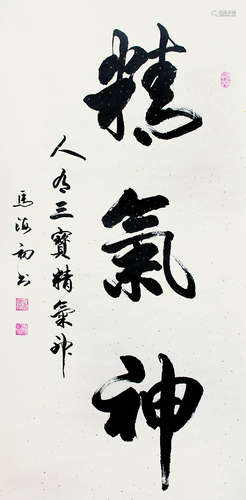 精氣神
人有三寶精氣神
馬海初书